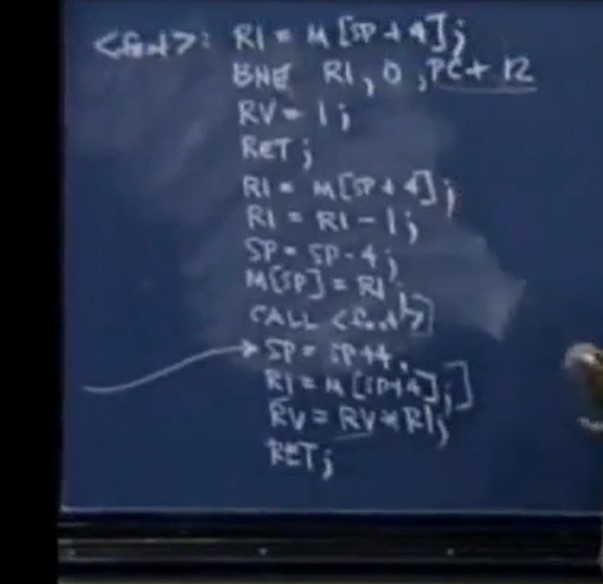 <fact>: R1 = M[SP+4];
BNE R1, 0, PC+12
RV = 1;
RET;
R1 = M[SP+4];
R1 = R1-1;
SP = SP-4;
M[SP] = R1;
CALL <fact>
SP = SP+4;
R1 = M[SP+4];
RV = RV*R1;
RET;